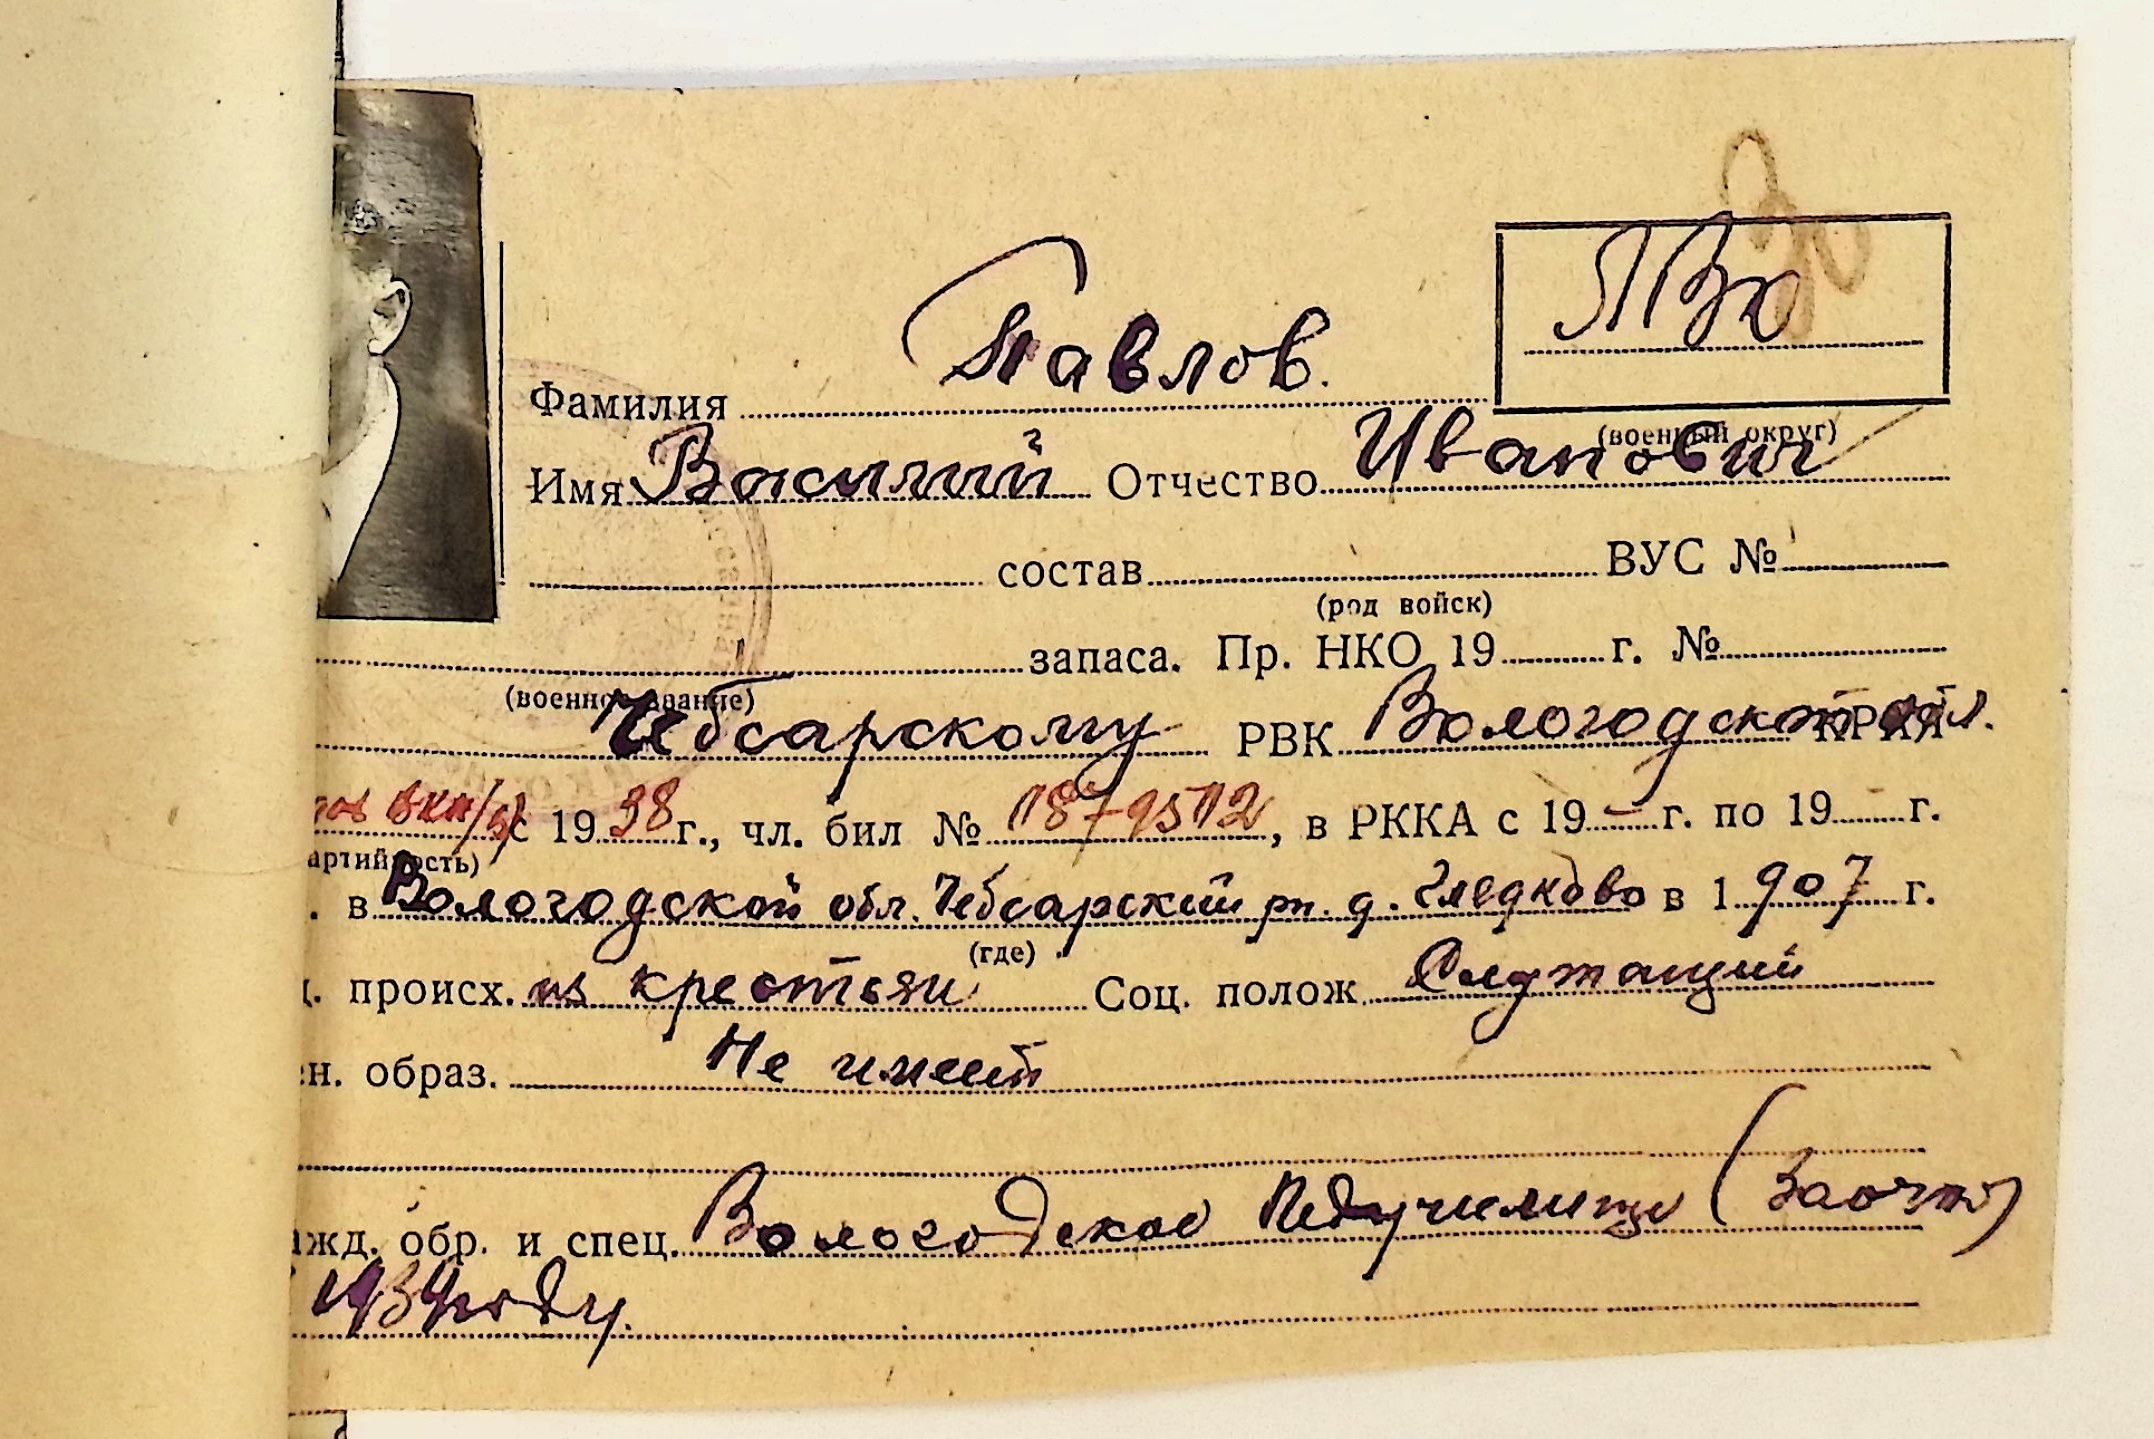 ЛВО
Фамилия Павлов.
(военный округ)
Имя Василий Отчество Иванович
состав ВУС №
(род войск)
запаса. Пр. НКО 19 г. №
(военное звание)
Чебсарскому РВК Вологодской КРАЯ обл.
ВКП/б/ с 1938 г., чл. бил № 1879512, в РККА с 19 – г. по 19 г.
артийность)
. в Вологодской обл. Чебсарский рн. д. в 1907 г.
(где)
. происх. из крестьян Соц. полож. Служащий
ен. образ. Не имеет
ажд. обр. и спец. Вологодское Педучилище (заочно)
1939 году.